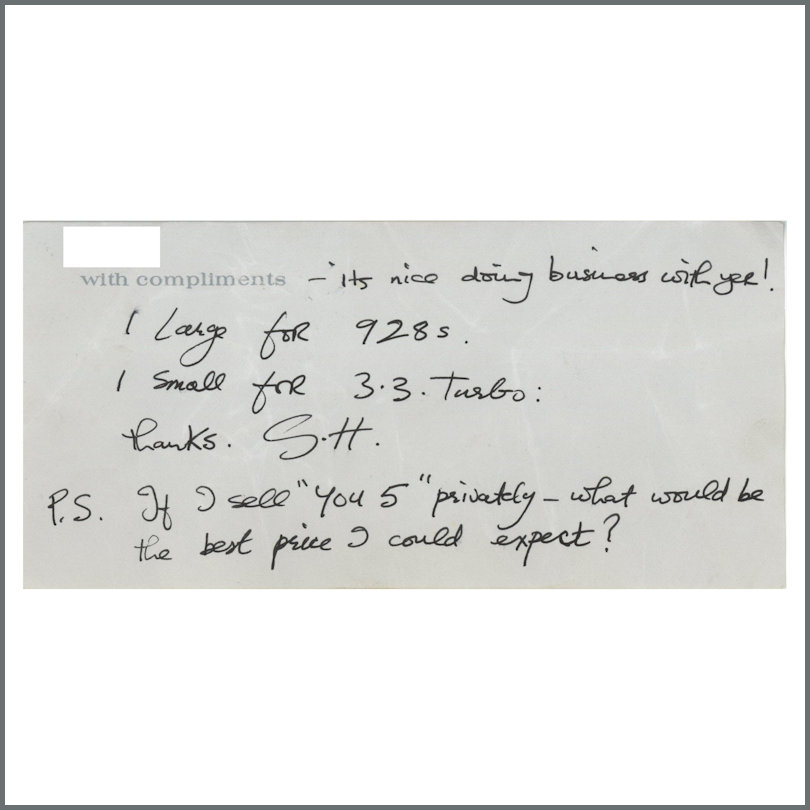 with compliments - its nice doing business with yer!
1 Large for 928s.
1 Small for 3.3. Turbo:
thanks. G.H.
P.S. If I sell "You 5" privately - what would be
the best price I could expect?